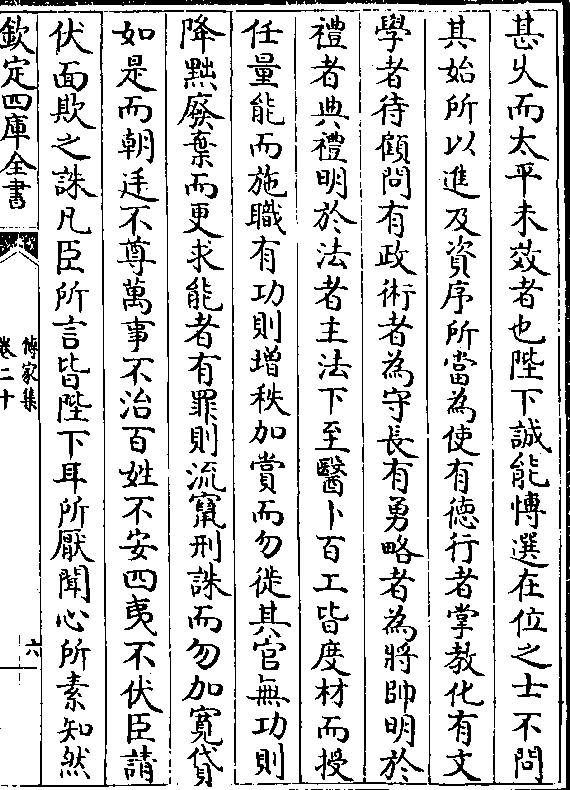 甚乆而太平未效者也陛下誠能愽選在位之士不問
其始所以進及資序所當為使有徳行者掌教化有文
學者待顧問有政術者為守長有勇略者為將帥明於
禮者典禮明於法者主法下至醫卜百工皆度材而授
任量能而施職有功則增秩加賞而勿徙其官無功則
降黜廢棄而更求能者有罪則流竄刑誅而勿加寛貸
如是而朝廷不尊萬事不治百姓不安四夷不伏臣請
伏面欺之誅凡臣所言皆陛下耳所厭聞心所素知然
欽定四庫全書
傳家集
卷二十
六